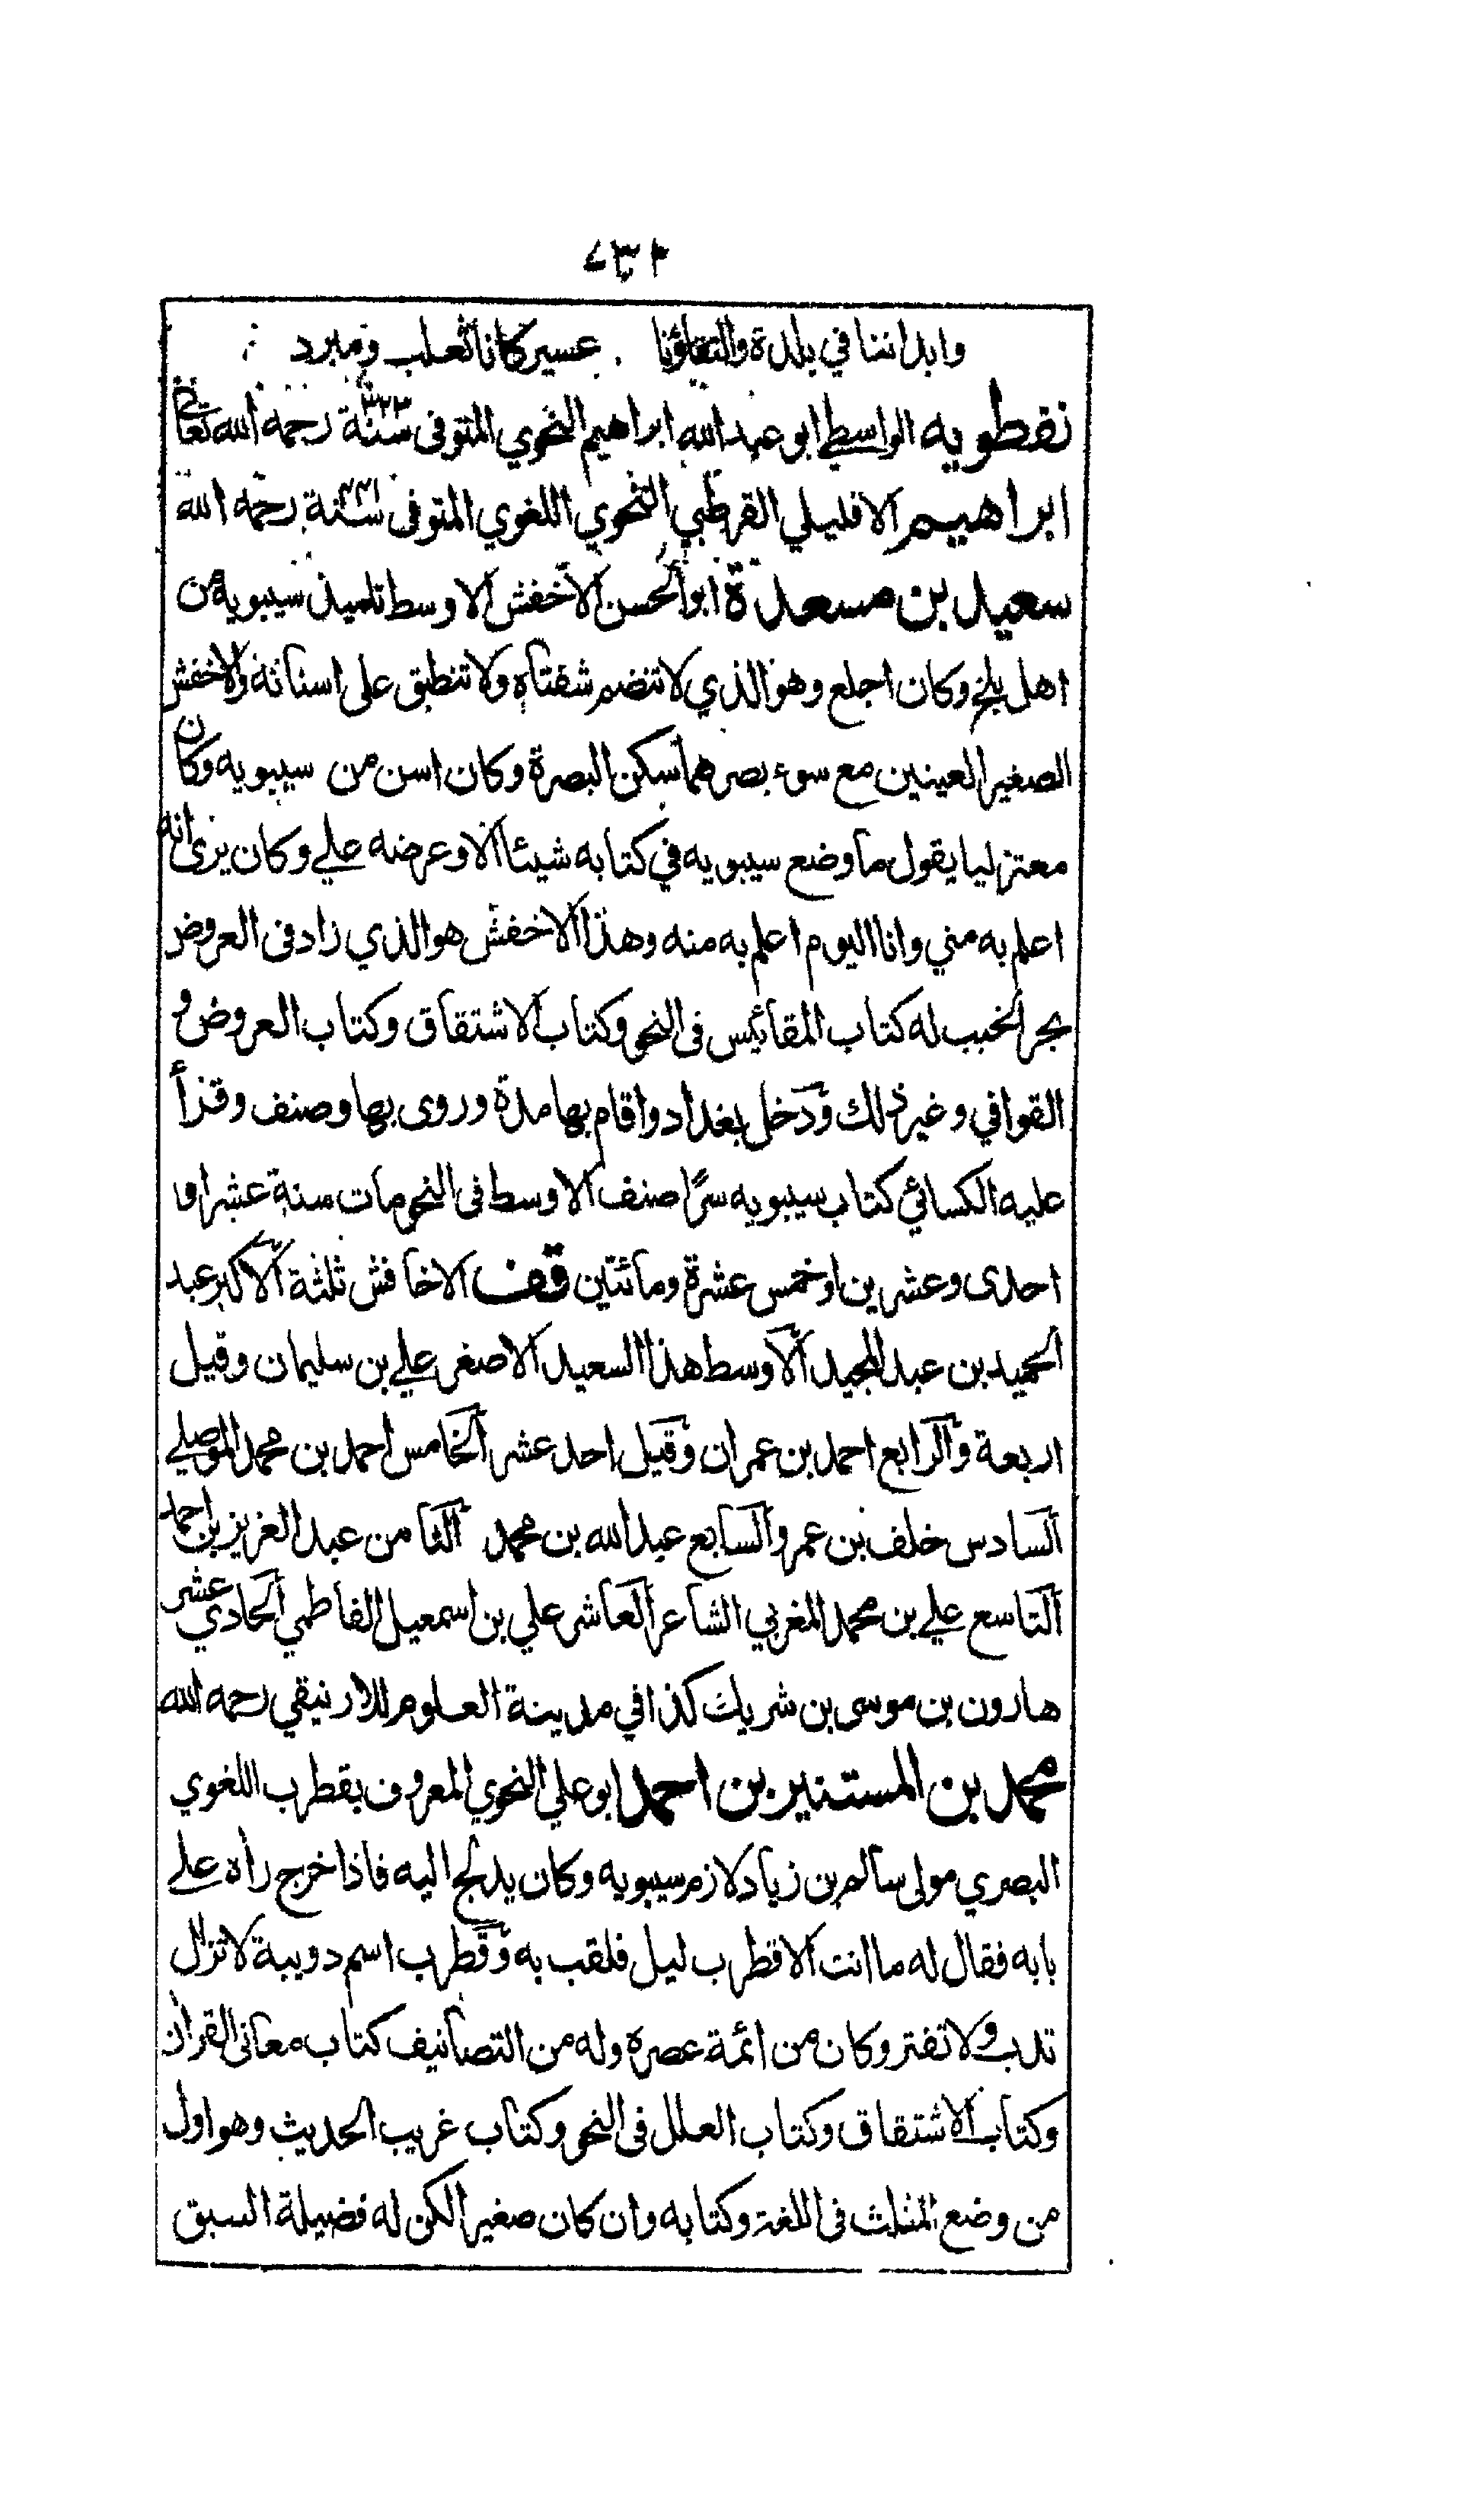 وابداننا في بلدة والتقاؤنا . عسير كانا ثعلب ومبرد
نفطويه الواسطي ابو عبد الله ابراهيم النحوي المتوفى سنة ٣٢٣ رحمه الله تعالى
ابراهيم الافليلي القرطبي النحوي اللغوي المتوفى سنة رحمه الله
سعيد بن مسعدة ابو الحسن الاخفش الاوسط تلميذ سيبويه من
اهل بلخ وكان اجلع وهو الذي لا تنضم شفتاه ولا تنطبق على اسنانه والاخفش
الصغير العينين مع سوء بصرهما سكن البصرة وكان اسن من سيبويه وكان
معتزليا يقول ما وضع سيبويه في كتابه شيئا الا وعرضه علي وكان يرى انه
اعلم به مني وانا اليوم اعلم به منه وهذا الاخفش هو الذي زاد فى العروض
بحر الخبب له كتاب المقائيس فى النحو وكتاب الاشتقاق وكتاب العروض و
القوافي وغير ذلك ودخل بغداد واقام بها مدة وروى بها وصنف وقرأ
عليه الكسائي كتاب سيبويه سرًا صنف الاوسط فى النحو مات سنة عشر او
احدى وعشرين او خمس عشرة ومائتين قف الاخافش ثلثة الاكبر عبد
الحميد بن عبد المجيد الاوسط هذا السعيد الاصغر علي بن سليمان وقيل
اربعة والرابع احمد بن عمران وقيل احد عشر الخامس احمد بن محمد الموصلي
السادس خلف بن عمر والسابع عبد الله بن محمد الثامن عبد العزيز بن احمد
التاسع علي بن محمد المغربي الشاعر العاشر علي بن اسمعيل الفاطمي الحادي عشر
هارون بن موسى بن شريك كذا في مدينة العلوم للارنيقي رحمه الله
محمد بن المستنير بن احمد ابو علي النحوي المعروف بقطرب اللغوي
البصري مولى سالم بن زياد لازم سيبويه وكان يدلج اليه فاذا خرج راه علي
بابه فقال له ما انت الا قطرب ليل فلقب به وقطرب اسم دويبة لا تزال
تدب ولا تفتر وكان من ائمة عصره وله من التصانيف كتاب معانى القرآن
وكتاب الاشتقاق وكتاب العلل فى النحو وكتاب غريب الحديث وهو اول
من وضع المثلث فى اللغة وكتابه وان كان صغيرا لكن له فضيلة السبق